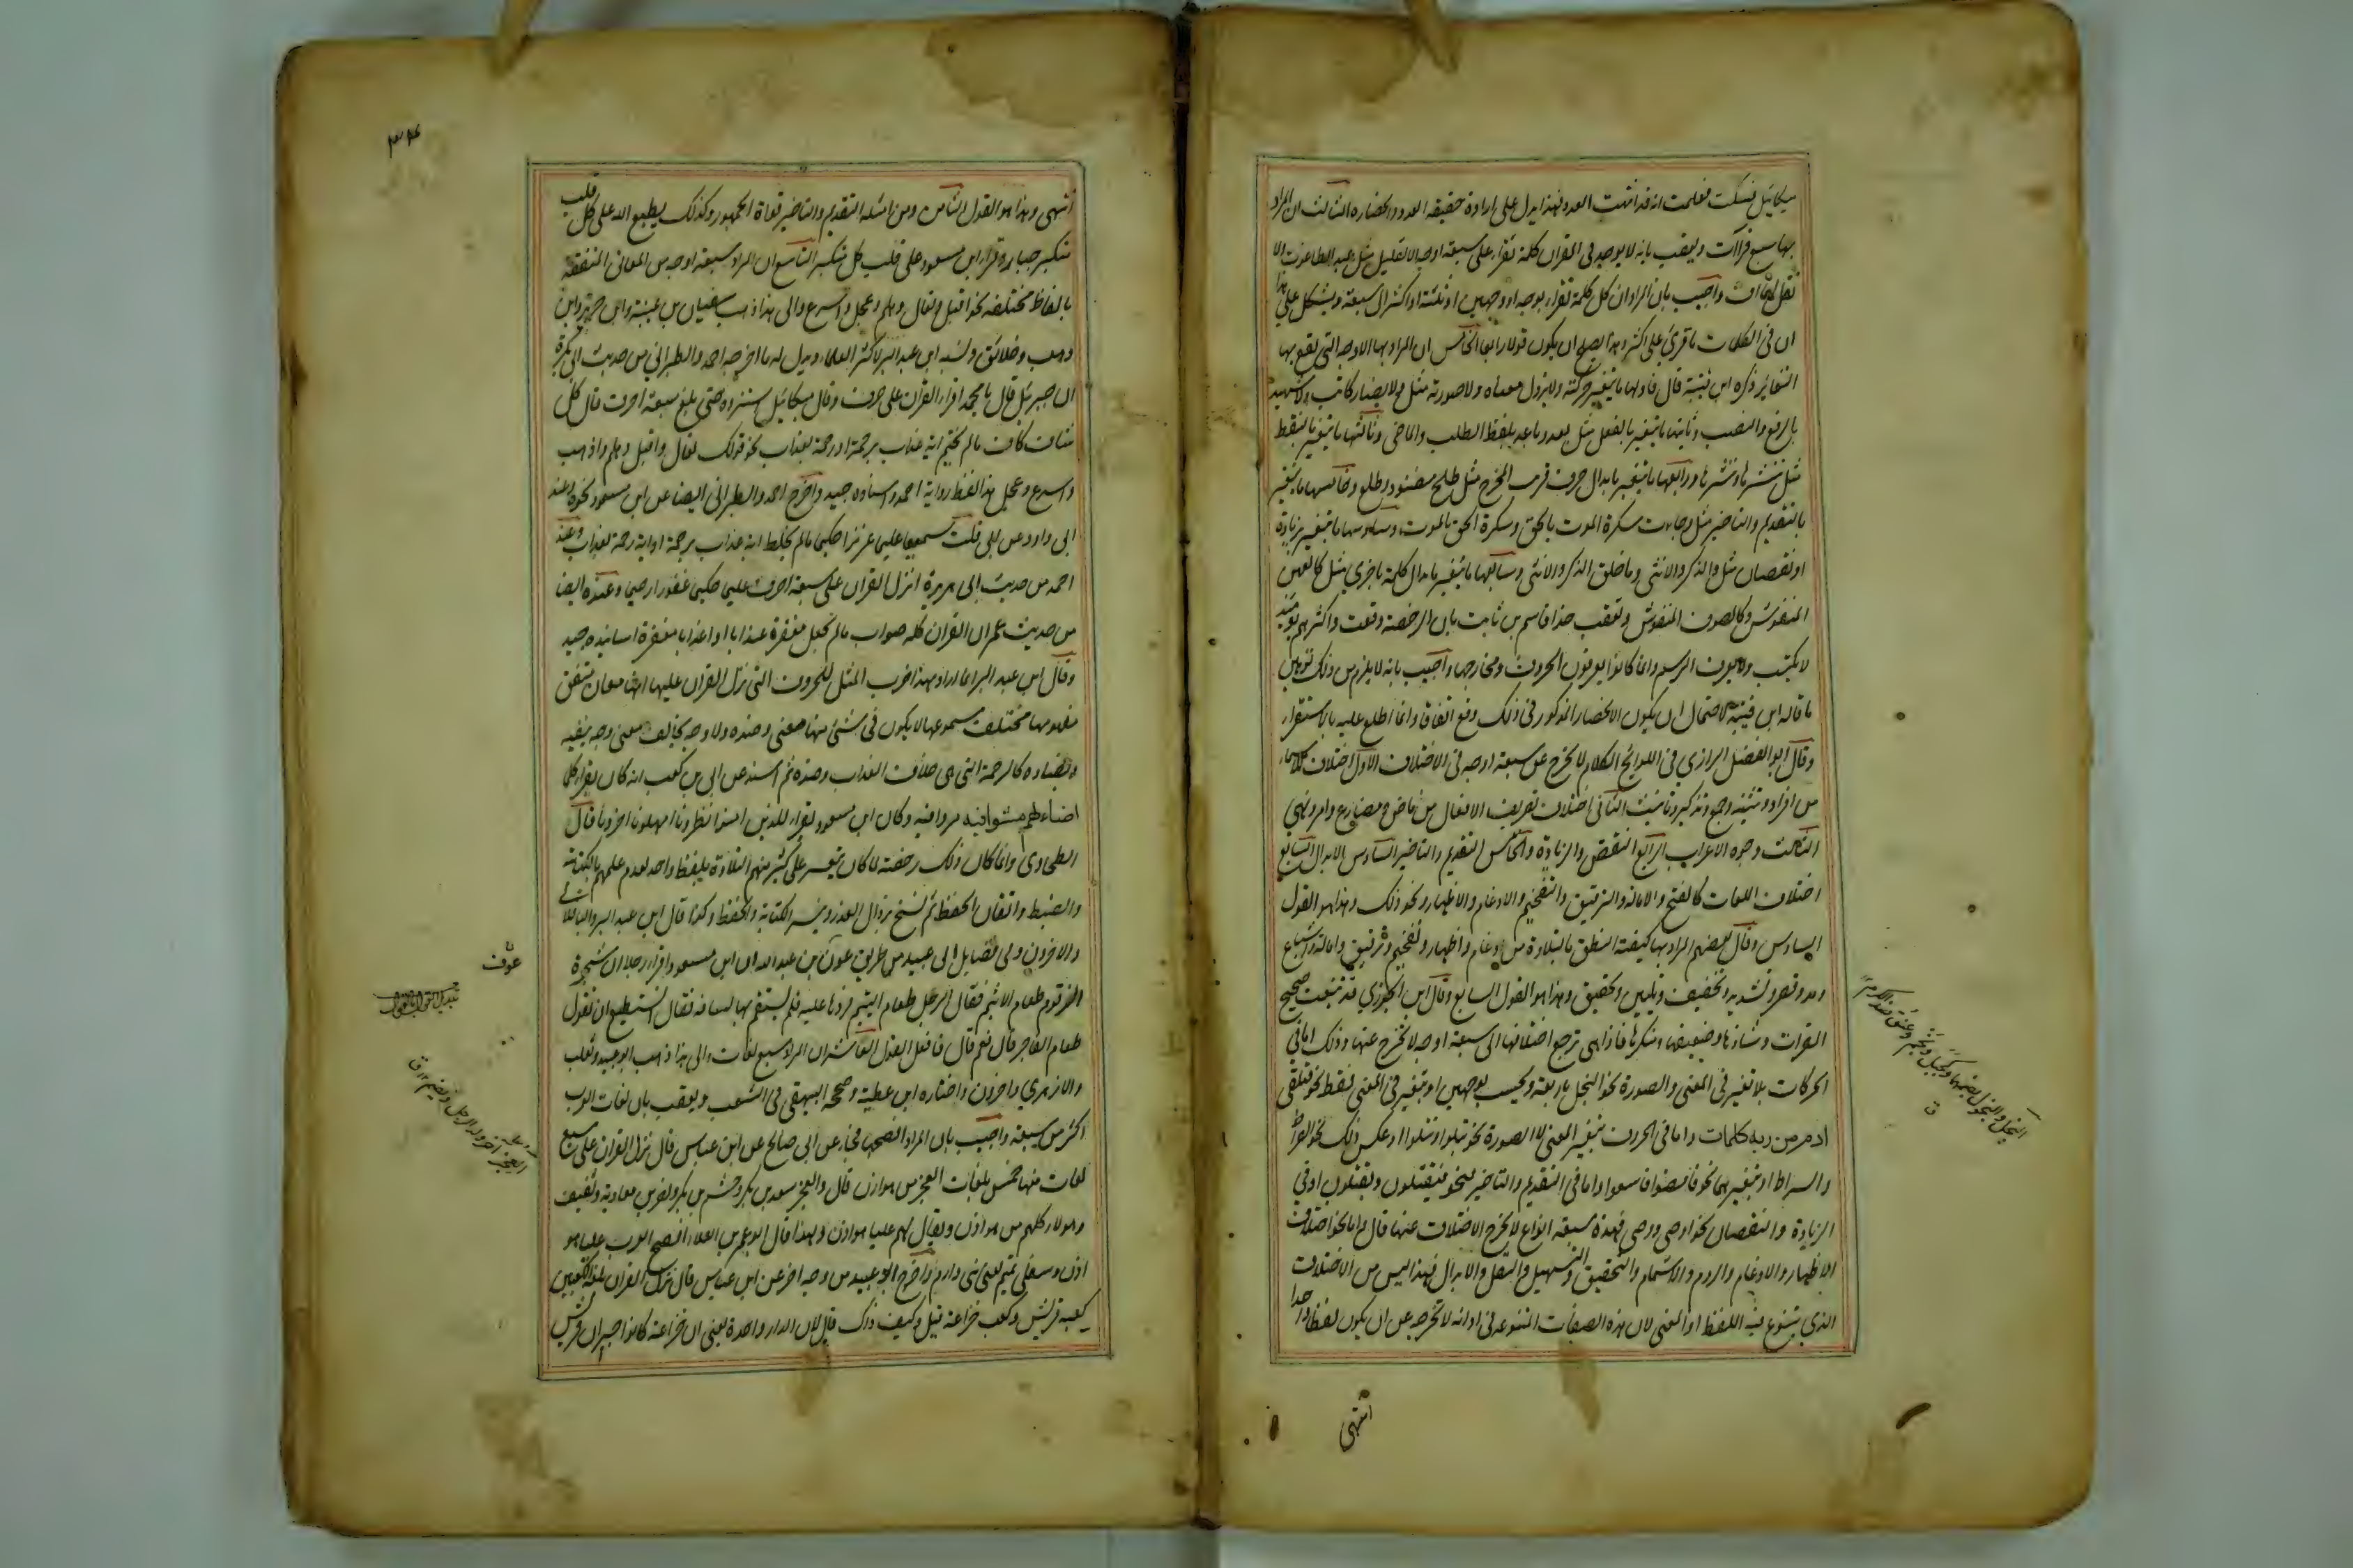 ميكائيل فسكت فعلمت انه قد انتهت العدة فهذا يدل على ارادة حقيقة العدد وانحصاره الثالث ان المراد
بها سبع قراآت وتعقب بانه لا يوجد في القران كلمة تقراء على سبعة اوجه الا القليل مثل وعبد الطاغوت ولا
تقل لهما اف واجيب بان المراد ان كل كلمة تقراء بوجه او وجهين او ثلثة او اكثر الى سبعة ويشكل على هذا
ان في الكلمات ما قرئ على اكثر وهذا يصلح ان يكون قولا رابعا الخامس ان المراد بها الاوجه التي يقع بها
التغاير ذكره ابن قتيبة قال فاولها ما يتغير حركته ولا يزول معناه ولا صورته مثل ولا يضار كاتب ولا شهيد
بالرفع والنصب وثانيها ما يتغير بالفعل مثل بعد وباعد بلفظ الطلب والماضي وثالثها ما يتغير بالنقط
مثل ننشرها وننشزها ورابعها ما يتغير بابدال حرف قريب المخرج مثل طلح منضود وطلع وخامسها ما يتغير
بالتقديم والتاخير مثل وجاءت سكرة الموت بالحق وسكرة الحق بالموت وسادسها ما يتغير بزيادة
او نقصان مثل والذكر والانثى وما خلق الذكر والانثى وسابعها ما يتغير بابدال كلمة باخرى مثل كالعهن
المنفوش وكالصوف المنفوش وتعقب هذا قاسم بن ثابت بان الرخصة وقعت واكثرهم يومئذ
لا يكتب ولا يعرف الرسم وانما كانوا يعرفون الحروف ومخارجها واجيب بانه لا يلزم من ذلك توهين
ما قاله ابن قتيبة لاحتمال ان يكون الانحصار المذكور في ذلك وقع اتفاقا وانما اطلع عليه بالاستقراء
وقال ابو الفضل الرازي في اللوايح الكلام لا يخرج عن سبعة اوجه في الاختلاف الاول اختلاف الاسماء
من افراد وتثنية وجمع وتذكير وتانيث الثاني اختلاف تصريف الافعال من ماض ومضارع وامر ونهي
الثالث وجوه الاعراب الرابع النقص والزيادة والخامس التقديم والتاخير السادس الابدال السابع
اختلاف اللغات كالفتح والامالة والترقيق والتفخيم والادغام والاظهار ونحو ذلك وهذا هو القول
السادس وقال بعضهم المراد بها كيفية النطق بالتلاوة من ادغام واظهار وتفخيم وترقيق وامالة واشباع
ومد وقصر وتشديد وتخفيف وتليين وتحقيق وهذا هو القول السابع وقال ابن الجوزي قد تتبعت صحيح
القرات وشاذها وضعيفها ومنكرها فاذا هي ترجع اختلافها الى سبعة اوجه لا تخرج عنها وذلك اما في
الحركات بلا تغير في المعنى والصورة نحو البخل باربعة ويحسب بوجهين او بتغير في المعنى فقط نحو فتلقى
ادم من ربه كلمات واما في الحروف بتغير المعنى لا الصورة نحو تبلوا وتتلوا او عكس ذلك نحو الصراط
والسراط او بتغيرهما نحو فامضوا فاسعوا واما في التقديم والتاخير نحو فيقتلون ويقتلون او في
الزيادة والنقصان نحو اوصى ووصى فهذه سبعة انواع لا يخرج الاختلاف عنها قال واما نحو اختلاف
الاظهار والادغام والروم والاشمام والتحقيق والتسهيل والنقل والابدال فهذا ليس من الاختلاف
الذي يتنوع فيه اللفظ او المعنى لان هذه الصفات المتنوعة في ادائه لا تخرجه عن ان يكون لفظا واحدا
انتهى
انتهى وهذا هو القول الثامن ومن امثلة التقديم والتاخير قراة الجمهور وكذلك يطبع الله على كل قلب
متكبر جبار وقراء ابن مسعود على قلب كل متكبر التاسع ان المراد سبعة اوجه من المعاني المتفقة
بالفاظ مختلفة نحو اقبل وتعال وهلم وعجل واسرع والى هذا ذهب سفيان بن عيينة وابن جرير وابن
وهب وخلائق ونسبه ابن عبد البر لاكثر العلماء ويدل له ما اخرجه احمد والطبراني من حديث ابي بكرة
ان جبرئيل قال يا محمد اقراء القران على حرف وقال ميكائيل استزده حتى بلغ سبعة احرف قال كل
شاف كاف ما لم يختم اية عذاب برحمة او رحمة بعذاب نحو قولك تعال واقبل وهلم واذهب
واسرع وعجل هذا لفظ رواية احمد واسناده جيد واخرج احمد والطبراني ايضا عن ابن مسعود نحوه وعند
ابي داود عن ابي قلت سميعا عليما عزيزا حكيما ما لم تخلط اية عذاب برحمة او اية رحمة بعذاب وعند
احمد من حديث ابي هريرة انزل القران على سبعة احرف عليما حكيما غفورا رحيما وعنده ايضا
من حديث عمر ان القران كله صواب ما لم تجعل مغفرة عذابا او عذابا مغفرة اسانيده جيد
وقال ابن عبد البر انما اراد بهذا ضرب المثل للحروف التي نزل القران عليها انها معان متفق
مفهومها مختلف مسموعها لا يكون في شئ منها معنى وضده ولا وجه يخالف معنى وجه ينفيه
ويضاده كالرحمة التي هي خلاف العذاب وضده ثم اسند عن ابي بن كعب انه كان يقراء كلما
اضاء لهم مشوا فيه مروا فيه وكان ابن مسعود يقراء للذين امنوا انظرونا امهلونا اخرونا قال
الطحاوي وانما كان ذلك رخصة لما كان يتعسر على كثير منهم التلاوة بلفظ واحد لعدم علمهم بالكتابة
والضبط واتقان الحفظ ثم نسخ بزوال العذر وتيسر الكتابة والحفظ وكذا قال ابن عبد البر والباقلاني
والاخرون وفي فضايل ابي عبيد من طريق عون بن عبد الله ان ابن مسعود اقراء رجلا ان شجرة
الزقوم طعام الاثيم فقال الرجل طعام اليتيم فردها عليه فلم يستقم بها لسانه فقال اتستطيع ان تقول
طعام الفاجر قال نعم قال فافعل القول العاشر ان المراد سبع لغات والى هذا ذهب ابو عبيد وثعلب
والازهري واخرون واختاره ابن عطية وصححه البيهقي في الشعب وتعقب بان لغات العرب
اكثر من سبعة واجيب بان المراد افصحها فجاء عن ابي صالح عن ابن عباس قال نزل القران على سبع
لغات منها خمس بلغات العجز من هوازن قال والعجز سعد بن بكر وجشم بن بكر ونصر بن معاوية وثقيف
وهولاء كلهم من هوازن ويقال لهم عليا هوازن ولهذا قال ابو عمرو بن العلاء افصح العرب عليا هو
ازن وسفلى تميم يعني بني دارم واخرج ابو عبيد من وجه اخر عن ابن عباس قال نزل القران بلغة الكعبين
كعب قريش وكعب خزاعة قيل وكيف ذاك قال لان الدار واحدة يعني ان خزاعة كانوا جيران قريش
عوف